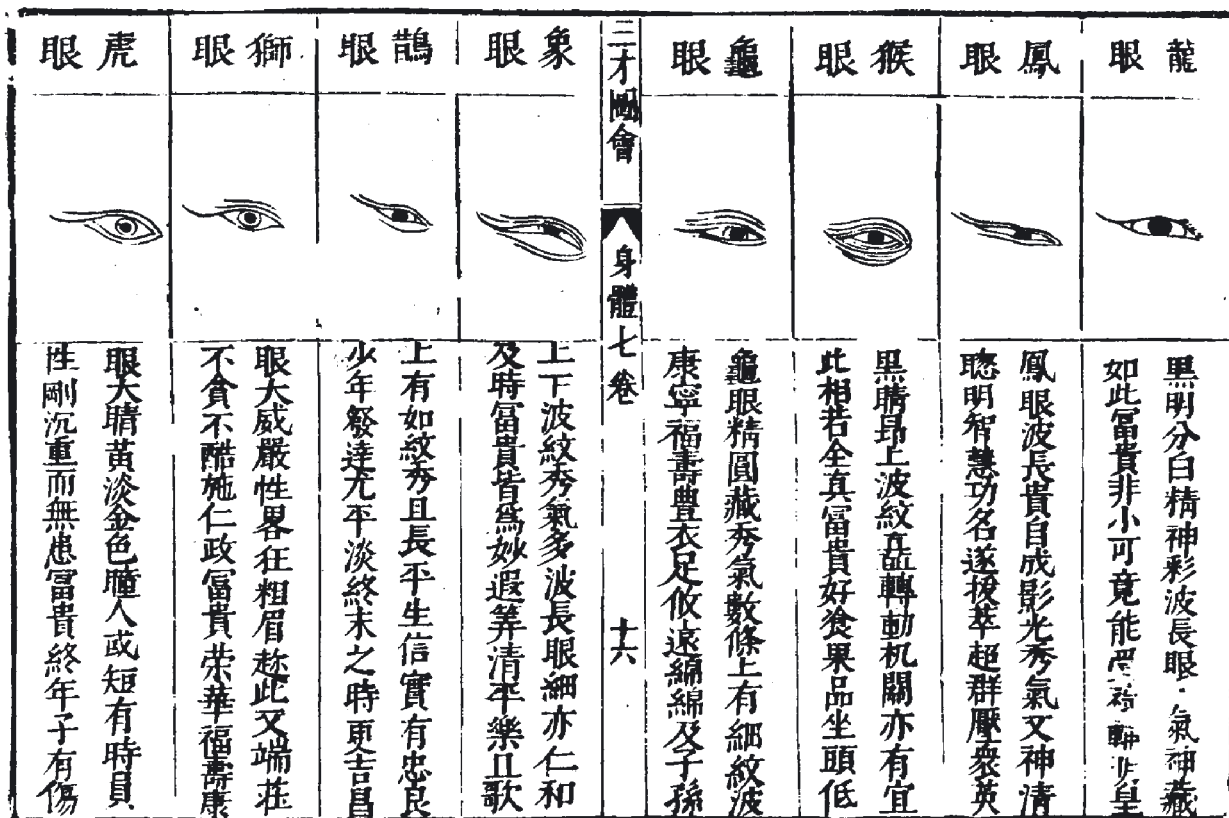 龍眼
黒明分白精神彩波長眼氣神藏
如此冨貴非小可竟能皇
鳳眼
鳳眼波長貴自成影光秀氣又神清
聰明智慧功名遂拔萃超群壓衆英
猴眼
黒睛昂上波紋矗轉動机關亦有宜
此相若全真冨貴好飡果品坐頭低
龜眼
龜眼精圓藏秀氣數條上有細紋波
康寧福壽豊衣足攸遠綿綿及子孫
三才圖會
身體七卷
十六
象眼
上下波紋秀氣多波長眼細亦仁和
及時冨貴皆爲妙遐筭清平樂且歌
鵲眼
上有如紋秀且長平生信實有忠良
少年發達尤平淡終末之時更吉昌
獅眼
眼大威嚴性畧狂粗眉趂此又端莊
不貪不酷施仁政冨貴荣華福壽康
虎眼
眼大睛黃淡金色瞳人或短有時員
性剛沉重而無患冨貴終年子有傷